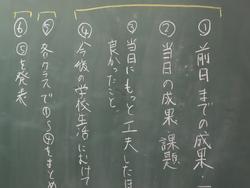 ①前日までの成果・
②当日の成果 課題
③当日にもっと工夫したほ
良かったこと
④今後の学校生活において
⑤各クラスで①〜④をまとめ
⑥⑤を発表